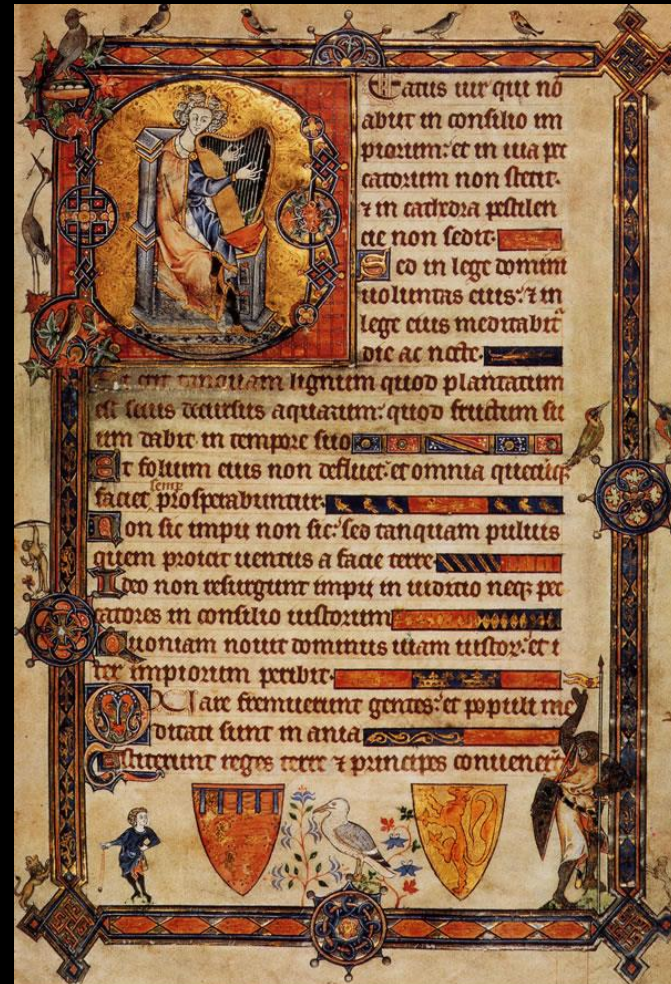 Eatus uir qui nō
abiit in consilio im
piorum: et in uia pec
catorum non stetit.
⁊ in cathedra pestilen
cie non sedit.
Sed in lege domini
uoluntas eius: ⁊ in
lege eius meditabit᷑
die ac nocte.
Et erit tanquam lignum quod plantatum
est secus decursus aquarum: quod fructum su
um dabit in tempore suo
Et folium eius non defluet: et omnia quecūq᷒
faciet semp prosperabuntur.
Non sic impii non sic: sed tanquam puluis
quem proicit uentus a facie terre.
Ideo non resurgunt impii in iuditio neq᷒ pec
catores in consilio iustorum
Quoniam nouit dominus uiam iustoꝝ: et i
ter impiorum peribit.
Quare fremuerunt gentes: et populi me
ditati sunt inania
Astiterunt reges terre ⁊ principes conuenerūt